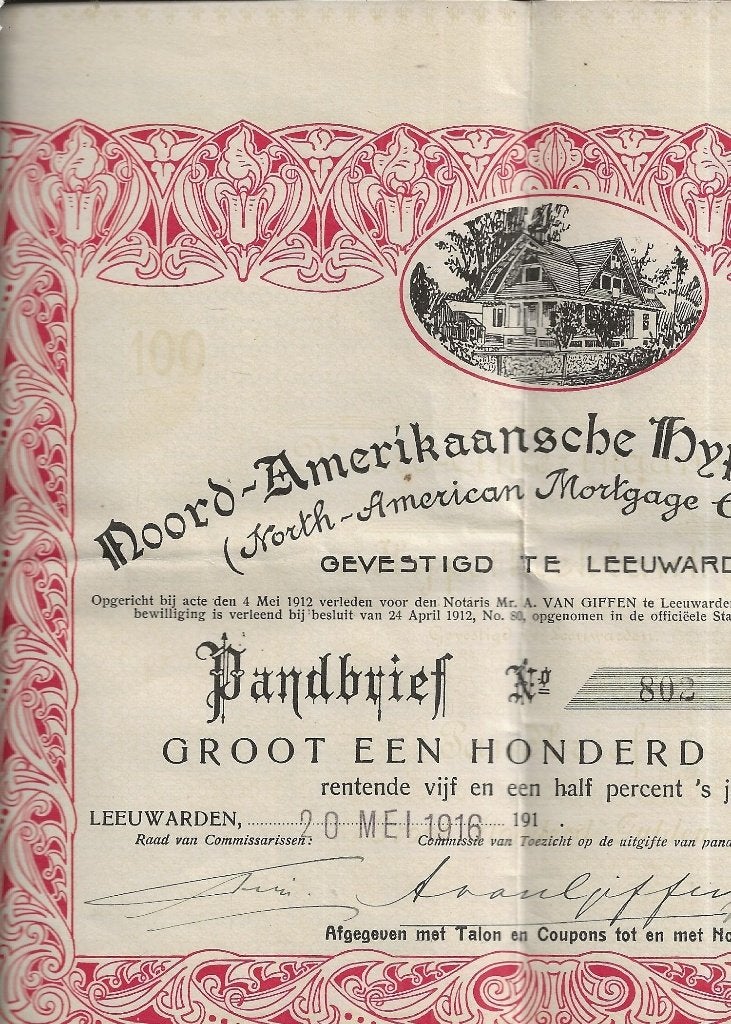 100
Noord-Amerikaansche Hyp
(North-American Mortgage C
GEVESTIGD TE LEEUWARD
Opgericht bij acte den 4 Mei 1912 verleden voor den Notaris Mr. A. VAN GIFFEN te Leeuwarde
bewilliging is verleend bij besluit van 24 April 1912, No. 80, opgenomen in de officiëele Sta
Pandbrief No 802
GROOT EEN HONDERD
rentende vijf en een half percent 's j
LEEUWARDEN, 20 MEI 1916 191 .
Raad van Commissarissen: Commissie van Toezicht op de uitgifte van pand
AvanGiffen
Afgegeven met Talon en Coupons tot en met No